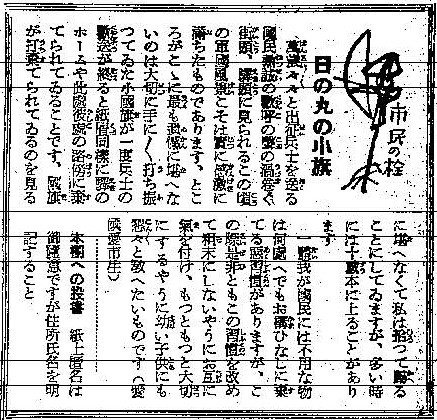 市民の栓
日の丸の小旗
萬歳々々と出征兵士を送る
國民熱誠の歡呼の聲の渦巻く
街頭、驛頭に見られるこの頃
の軍國風景こそは實に感激に
満ちたものであります、とこ
ろがこゝに最も遺憾に堪へな
いのは大切に手に〳〵打ち振
つてゐた小國旗が一度兵士の
歡送が終ると紙屑同樣に驛の
ホームや此處彼處の路傍に棄
てられてゐることです、國旗
が打棄てられてゐるのを見る
に堪へなくて私は拾つて歸る
ことにしてゐますが、多い時
には十數本に上ることがあり
ます
一體我が國民には不用な物
は何處へでもお構ひなしに棄
てる惡習慣がありますが、こ
の際是非ともこの習慣を改め
て粗末にしないやうにお互に
氣を付け、もつともつと大切
にするやうに幼い子供にも
懇々と教へたいものです（愛
國愛市生）
本欄への投書 紙上匿名は
御隨意ですが住所氏名を明
記すること